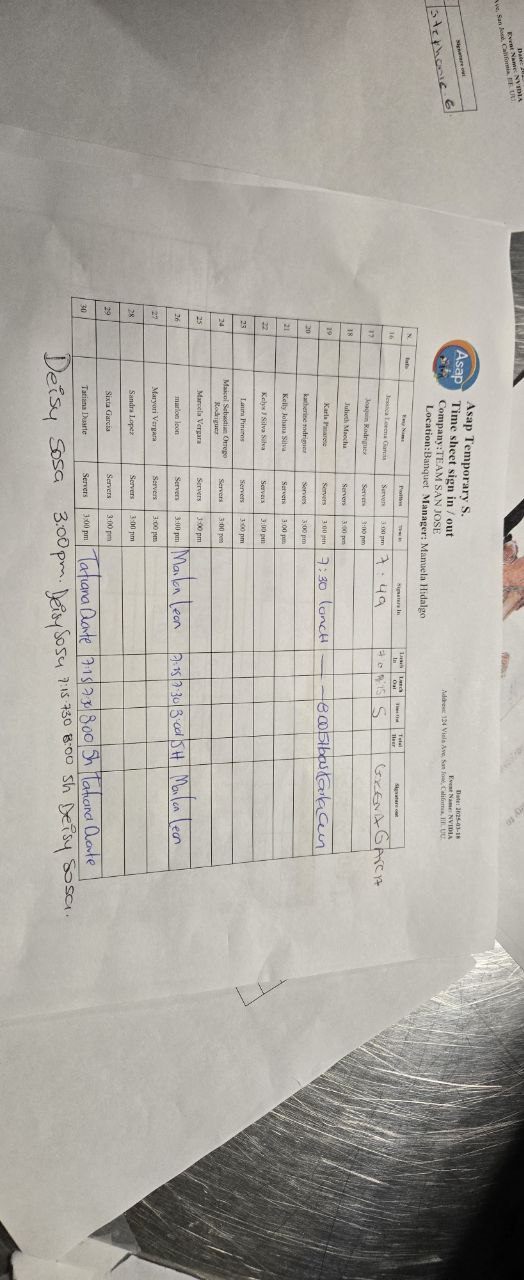 Asap
Asap Temporary S.
Time sheet sign in / out
Company:TEAM SAN JOSE
Location:Banquet Manager: Manuela Hidalgo
Date: 2025-03-18
Event Name: NVIDIA
Address: 124 Viola Ave, San José, California, EE. UU.
N. Info Emp Name Position Time in Signature In Lunch In Lunch Out Time Out Total Hour Signature out
16 Jessica Lorena Garcia Servers 3:00 pm 7:49 5 GARCIA
17 Joaquin Rodriguez Servers 3:00 pm
18 Julieth Mancha Servers 3:00 pm
19 Karla Servers 3:00 pm 7:30 lunch
20 katherine rodriguez Servers 3:00 pm
21 Kelly Johana Silva Servers 3:00 pm
22 Kelys J Silva Silva Servers 3:00 pm
23 Laura Pineros Servers 3:00 pm
24 Maicol Sebastian Orrego Rodriguez Servers 3:00 pm
25 Marcela Vergara Servers 3:00 pm
26 marlon leon Servers 3:00 pm Marlon Leon 7:15 7:30 8:00 5H Marlon Leon
27 Maryuri Vergara Servers 3:00 pm
28 Sandra Lopez Servers 3:00 pm
29 Sixta Garcia Servers 3:00 pm
30 Tatiana Duarte Servers 3:00 pm Tatiana Duarte 7:15 7:30 8:00 5h Tatiana Duarte
Deisy Sosa 3:00 pm. Deisy Sosa 7:15 730 8:00 5h Deisy Sosa.
Event Name: NVIDIA
Ave, San José, California, EE. UU.
Signature out
Stephanie G.